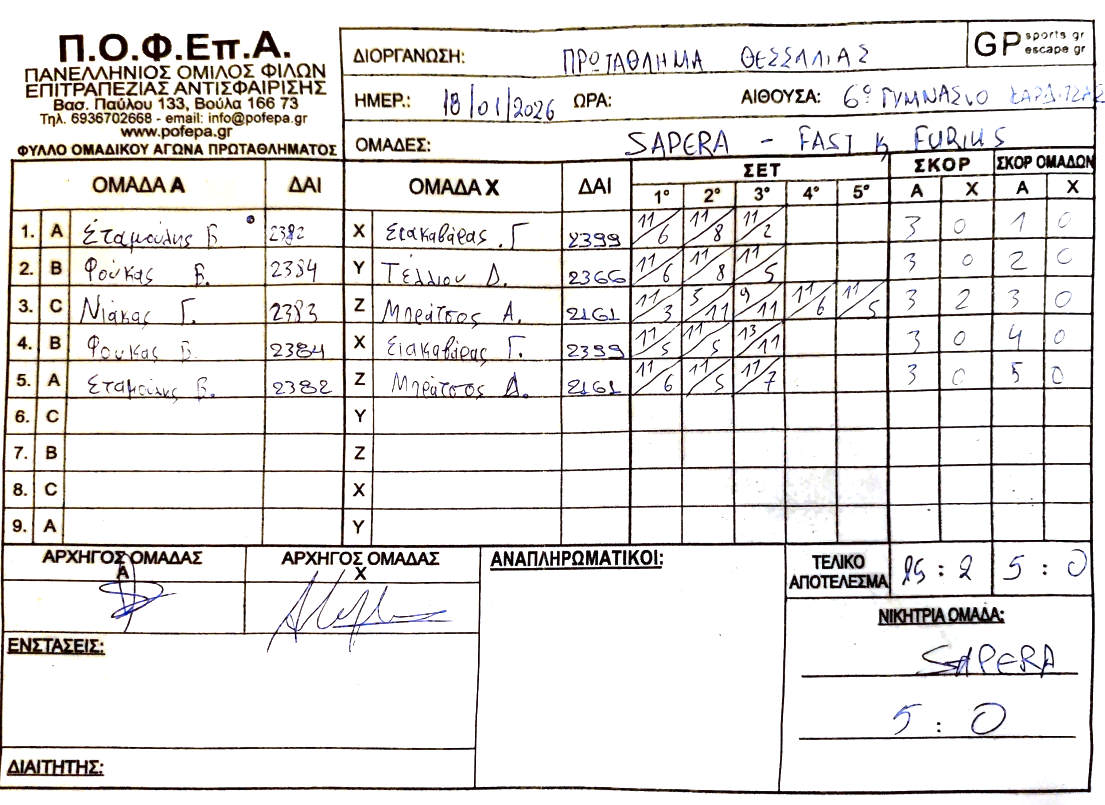 Π.Ο.Φ.Επ.Α.
ΠΑΝΕΛΛΗΝΙΟΣ ΟΜΙΛΟΣ ΦΙΛΩΝ
ΕΠΙΤΡΑΠΕΖΙΑΣ ΑΝΤΙΣΦΑΙΡΙΣΗΣ
Βασ. Παύλου 133, Βούλα 166 73
Τηλ. 6936702668 - email: info@pofepa.gr
www.pofepa.gr
ΦΥΛΛΟ ΟΜΑΔΙΚΟΥ ΑΓΩΝΑ ΠΡΩΤΑΘΛΗΜΑΤΟΣ
ΔΙΟΡΓΑΝΩΣΗ: ΠΡΩΤΑΘΛΗΜΑ ΘΕΣΣΑΛΙΑΣ
GP sports gr escape gr
ΗΜΕΡ.: 18/01/2026 ΩΡΑ: ΑΙΘΟΥΣΑ: 6ο ΓΥΜΝΑΣΙΟ ΚΑΡΔΙΤΣΑΣ
ΟΜΑΔΕΣ: SAPERA - FAST & FURIUS
ΟΜΑΔΑ Α ΔΑΙ ΟΜΑΔΑ Χ ΔΑΙ ΣΕΤ ΣΚΟΡ ΣΚΟΡ ΟΜΑΔΩΝ
1° 2° 3° 4° 5° Α Χ Α Χ
1. Α Σταμούλης Β 2382 Χ Σιακαβάρας Γ 2399 11/6 11/8 11/2 3 0 1 0
2. Β Φούκας Β. 2384 Υ Τέλλιου Δ. 2366 11/6 11/8 11/5 3 0 2 0
3. C Νιάκας Γ. 2383 Ζ Μπράτσος Α. 2161 11/3 5/11 9/11 11/6 11/5 3 2 3 0
4. Β Φουκας Β. 2384 Χ Σιακαβάρας Γ. 2399 11/5 11/5 13/11 3 0 4 0
5. Α Σταμούλης Β. 2382 Ζ Μπράτσος Α. 2161 11/6 11/5 11/7 3 0 5 0
6. C Υ
7. Β Ζ
8. C Χ
9. Α Υ
ΑΡΧΗΓΟΣ ΟΜΑΔΑΣ Α
ΑΡΧΗΓΟΣ ΟΜΑΔΑΣ Χ
ΑΝΑΠΛΗΡΩΜΑΤΙΚΟΙ:
ΤΕΛΙΚΟ ΑΠΟΤΕΛΕΣΜΑ 15 : 2 5 : 0
ΝΙΚΗΤΡΙΑ ΟΜΑΔΑ:
SAPERA
5 : 0
ΕΝΣΤΑΣΕΙΣ:
ΔΙΑΙΤΗΤΗΣ: